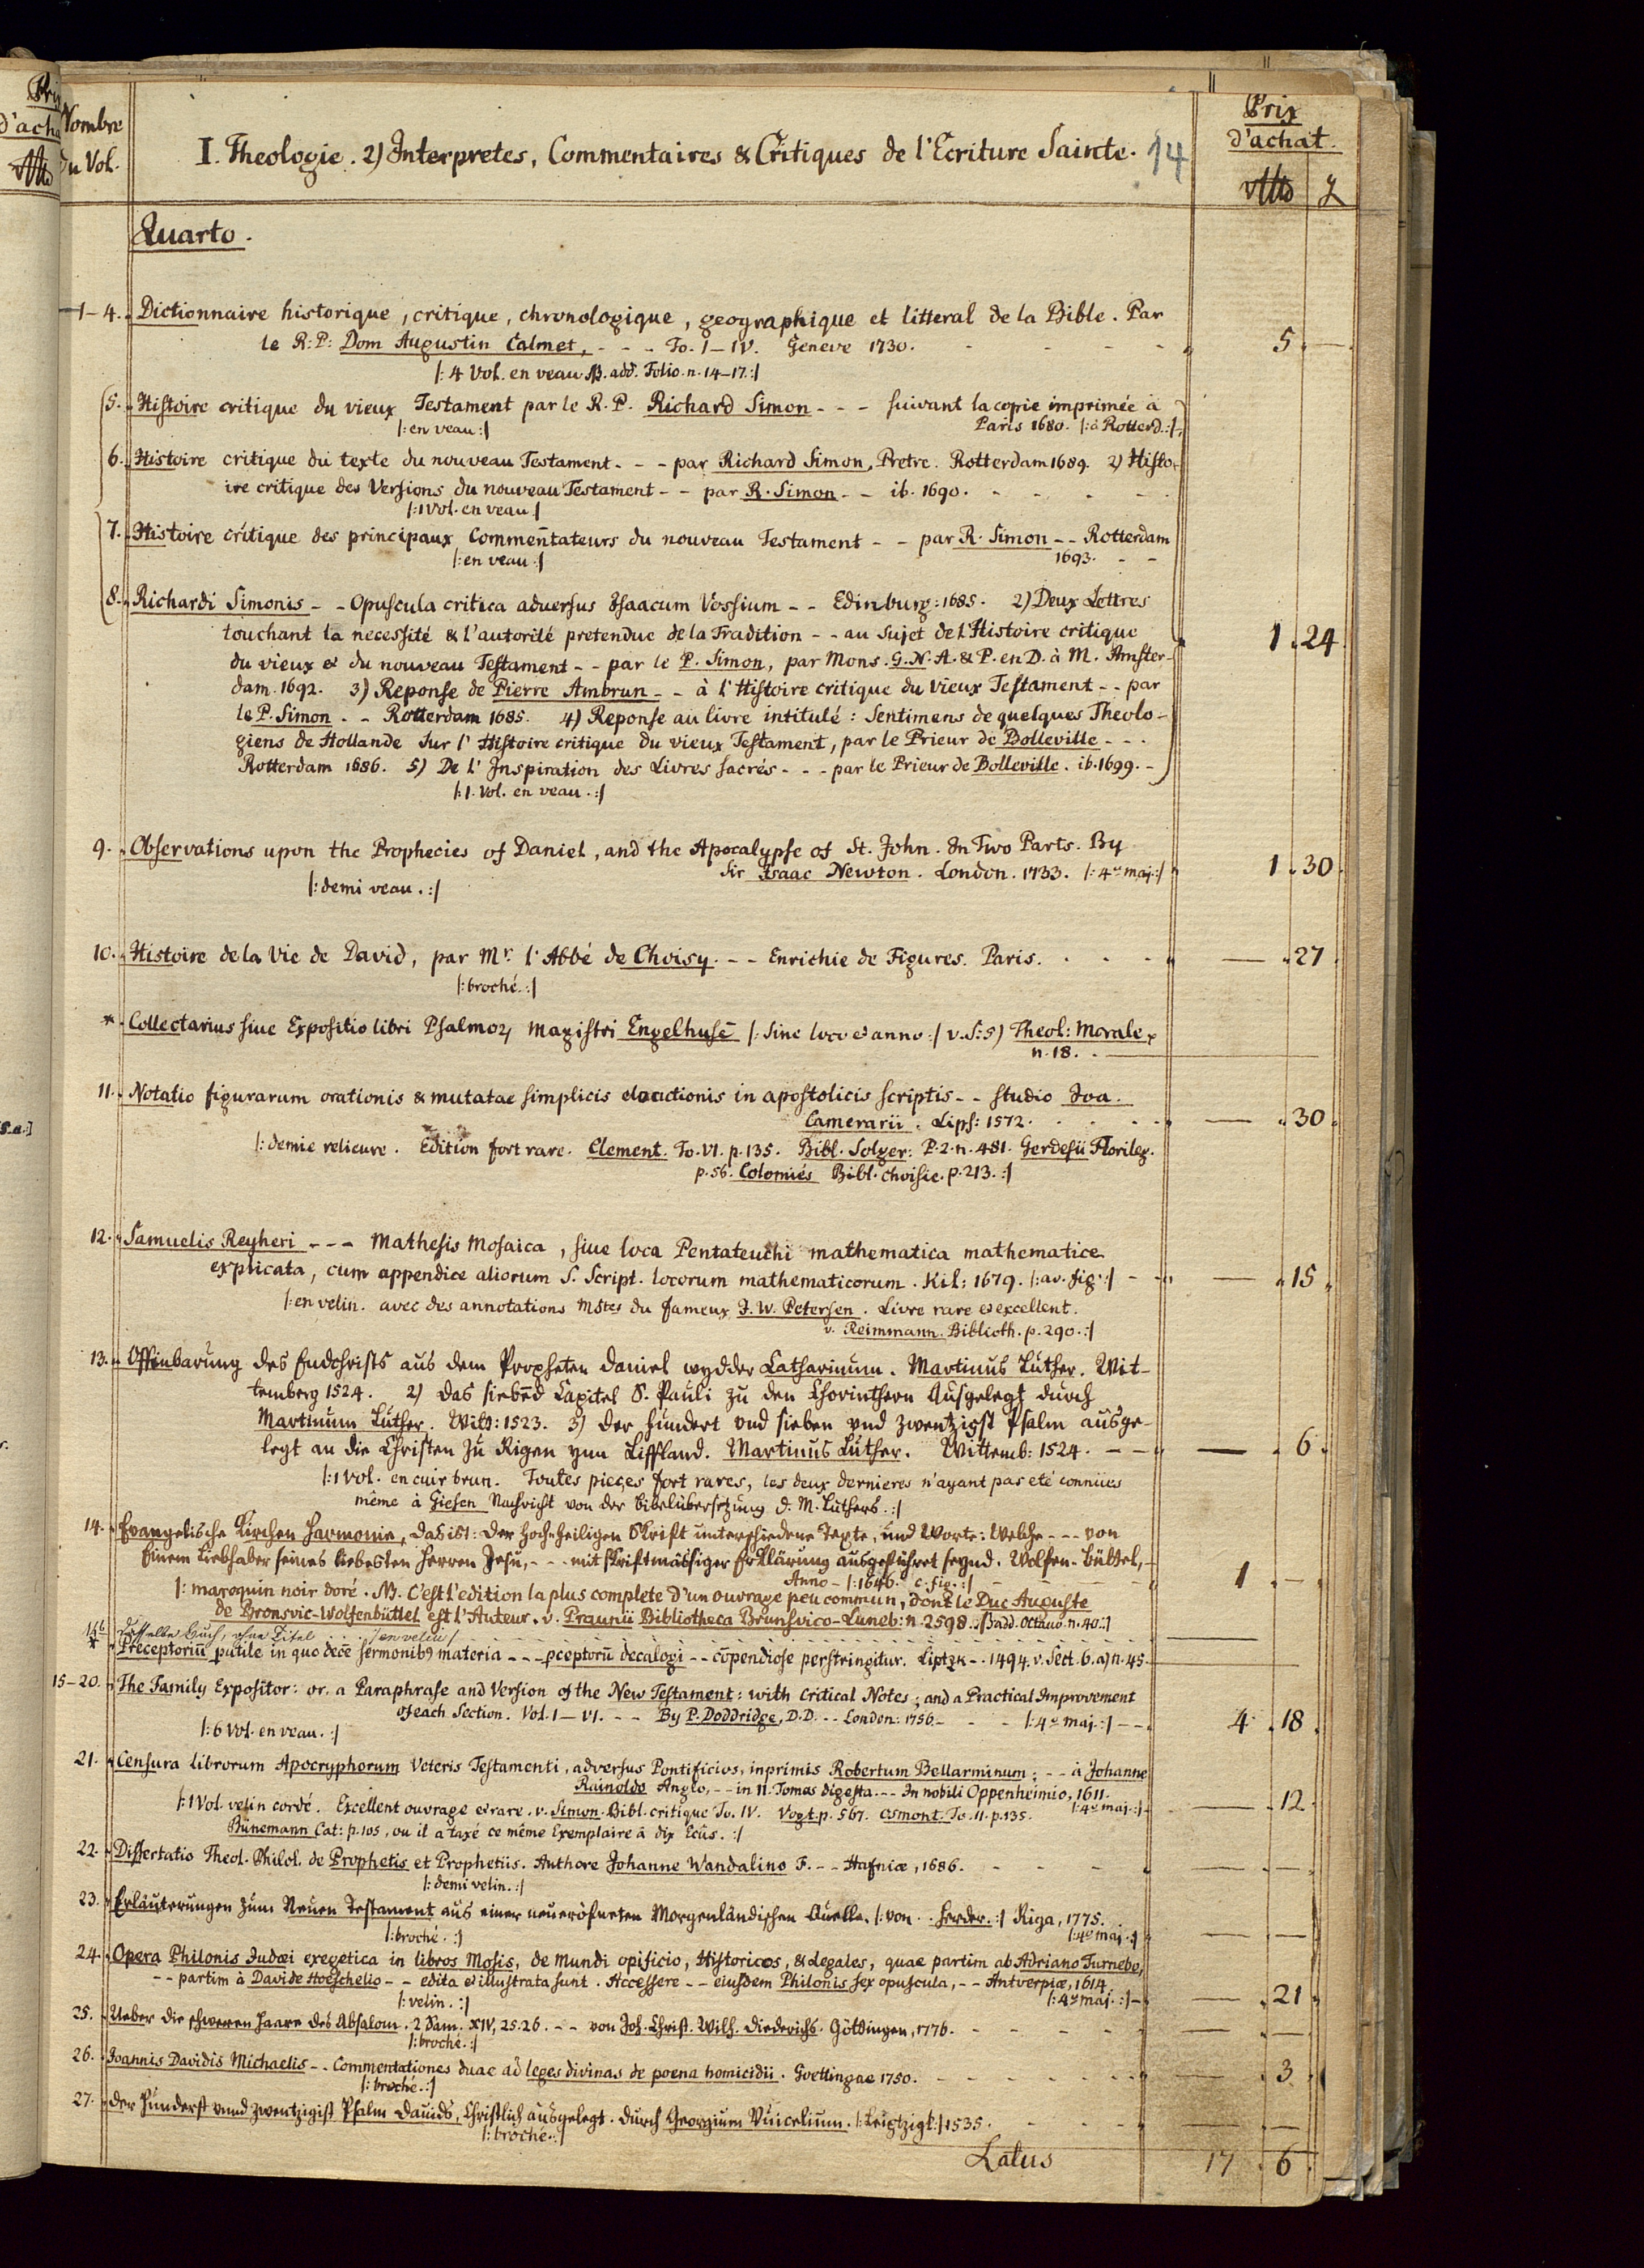 Prix
d'achat.
Nombre
du Vol.
I. Theologie. 2) Interpretes, Commentaires & Critiques de l'Ecriture Sainte. 14
Quarto.
1-4. Dictionnaire historique, critique, chronologique, geographique et litteral de la Bible. Par
le R: P: Dom Augustin Calmet, - - - To. I-IV. Geneve 1730. 5. —
|: 4 Vol. en veau NB. add. Folio. n. 14-17. :|
5. Histoire critique du vieux Testament par le R. P. Richard Simon - - - suivant la copie imprimée à
|: en veau :| Paris 1680. |: à Rotterd. :|
6. Histoire critique du texte du nouveau Testament - - - par Richard Simon, Pretre. Rotterdam 1689. 2) Histo-
ire critique des Versions du nouveau Testament - - par R. Simon - - ib. 1690.
|: 1 Vol. en veau :|
7. Histoire critique des principaux Commentateurs du nouveau Testament - - par R. Simon - - Rotterdam
|: en veau :| 1693. - -
8. Richardi Simonis - - Opuscula critica adversus Isaacum Vossium - - Edinburg: 1685. 2) Deux Lettres
touchant la necessité & l'autorité pretendue de la Tradition - - au sujet de l'Histoire critique 1. 24
du vieux & du nouveau Testament - - par le P. Simon, par Mons. G. N. A. & P. en D. à M. Amster-
dam. 1692. 3) Reponse de Pierre Ambrun - - à l'Histoire critique du Vieux Testament - - par
le P. Simon - - Rotterdam 1685. 4) Reponse au livre intitulé: Sentimens de quelques Theolo-
giens de Hollande sur l'Histoire critique du vieux Testament, par le Prieur de Bolleville - - -
Rotterdam 1686. 5) De l'Inspiration des Livres sacrés - - - par le Prieur de Bolleville. ib. 1699. -
|: 1. Vol. en veau. :|
9. Observations upon the Prophecies of Daniel, and the Apocalypse of St. John. In Two Parts. By
Sir Isaac Newton. London. 1733. |: 4to maj. :| 1. 30
|: demi veau. :|
10. Histoire de la Vie de David, par Mr. l'Abbé de Choisy. - - Enrichie de Figures. Paris. — . 27
|: broché. :|
* Collectarius sive Expositio libri Psalmoꝝ Magistri Engelhusē |: sine loco & anno :| v. S: 5) Theol: Morale
n. 18.
11. Notatio figurarum orationis & mutatae simplicis elocutionis in apostolicis scriptis - - studio Joa.
Camerarii. Lips: 1572. — . 30
|: demie relieure. Edition fort rare. Clement. To. VI. p. 135. Bibl. Solger: P. 2. n. 481. Gerdesii Florileg.
p. 56. Colomiés Bibl. choisie. p. 213. :|
12. Samuelis Reyheri - - - Mathesis Mosaica, sive loca Pentateuchi mathematica mathematice
explicata, cum appendice aliorum S. Script. locorum mathematicorum. Kil: 1679. |: av. fig. :| — . 15
|: en velin. avec des annotations Mstes du fameux J. W. Petersen. Livre rare & excellent.
v. Reimmann. Biblioth. p. 290. :|
13. Offinbarung des Endchrists aus dem Propheten Daniel wydder Catharinum. Martinus Luther. Wit-
temberg 1524. 2) Das siebend Capitel S. Pauli zu den Chorinthern Ausgelegt durch
Martinum Luther. Witt: 1523. 3) Der hundert und sieben vnd zwentzigst Psalm ausge-
legt an die Christen zu Rigen ynn Liffland. Martinus Luther. Wittemb: 1524. - - — . 6
|: 1 Vol. en cuir brun. Toutes pieces fort rares, les deux dernieres n'ayant pas eté connües
même à Giesen Nachricht von der Bibelübersetzung D. M. Luthers. :|
14. Evangelische Kirchen Harmonie, das ist: Der Hoch-heiligen Schrift unterschiedene Texte, und Worte: Welche - - - von
Einem Liebhaber seines liebesten Herren Jesu, - - - mit schriftmässiger Erklärung ausgeführet seynd. Wolfen-Büttel,
Anno - |: 1646. c. fig. :| 1. —
|: maroquin noir doré. NB. C'est l'edition la plus complete d'un ouvrage peu commun, dont le Duc Auguste
de Bronsvic-Wolfenbüttel est l'Auteur. v. Praunii Bibliotheca Brunsvico-Luneb: n. 2598. NB add. Octavo. n. 40. :|
14b Dasselbe Buch, ohne Titel . . . |: en velin |
* Preceptoriū putile in quo decē sermonibꝰ materia - - - pceptorū decalogi - - cōpendiose perstringitur. Liptzk - - 1494. v. Sect. 6. a) n. 45.
15-20. The Family Expositor: or, a Paraphrase and Version of the New Testament: with Critical Notes; and a Practical Improvement
of each Section. Vol. I-VI. - - - By P. Doddridge, D.D. - - London: 1756. - - |: 4to maj. :| 4. 18
|: 6 Vol. en veau. :|
21. Censura librorum Apocryphorum Veteris Testamenti, adversus Pontificios, inprimis Robertum Bellarminum; - - à Johanne
Rainoldo Anglo, - - in II. Tomos digesta. - - In nobili Oppenheimio, 1611.
|: 4to maj. :| — . 12
|: 1 Vol. velin cordé. Excellent ouvrage & rare. v. Simon. Bibl. critique To. IV. Vogt. p. 567. Osmont. To. II. p. 135.
Bünemann Cat: p. 105, ou il a taxé ce même Exemplaire à dix Ecûs. :|
22. Dissertatio Theol. Philol. de Prophetis et Prophetiis. Authore Johanne Wandalino F. - - Hafniæ, 1686. — . —
|: demi velin. :|
23. Erläuterungen zum Neuen Testament aus einer neueröfneten Morgenländischen Quelle. |: von . . Herder. :| Riga, 1775.
|: broché. :| |: 4to maj. :| — . —
24. Opera Philonis Judæi exegetica in libros Mosis, de Mundi opificio, Historicos, & Legales, quae partim ab Adriano Turnebo,
- - partim à Davide Hoeschelio - - edita & illustrata sunt. Accessere - - eiusdem Philonis sex opuscula, - - Antverpiæ, 1614.
|: velin. :| |: 4to maj. :| — . 21
25. Ueber die schweren Haare des Absalom. 2 Sam. XIV, 25. 26. - - von Joh. Christ. Wilh. Diederichs. Göttingen, 1776. — . —
|: broché. :|
26. Joannis Davidis Michaelis - - Commentationes duae ad leges divinas de poena homicidii. Goettingae 1750. — . 3
|: broché. :|
27. Der Hunderst vnnd zwentzigist Psalm Dauids, Christlich ausgelegt. durch Georgium Vuicelium. |: Leiptzigk :| 1535. — . —
|: broché. :|
Latus 17. 6